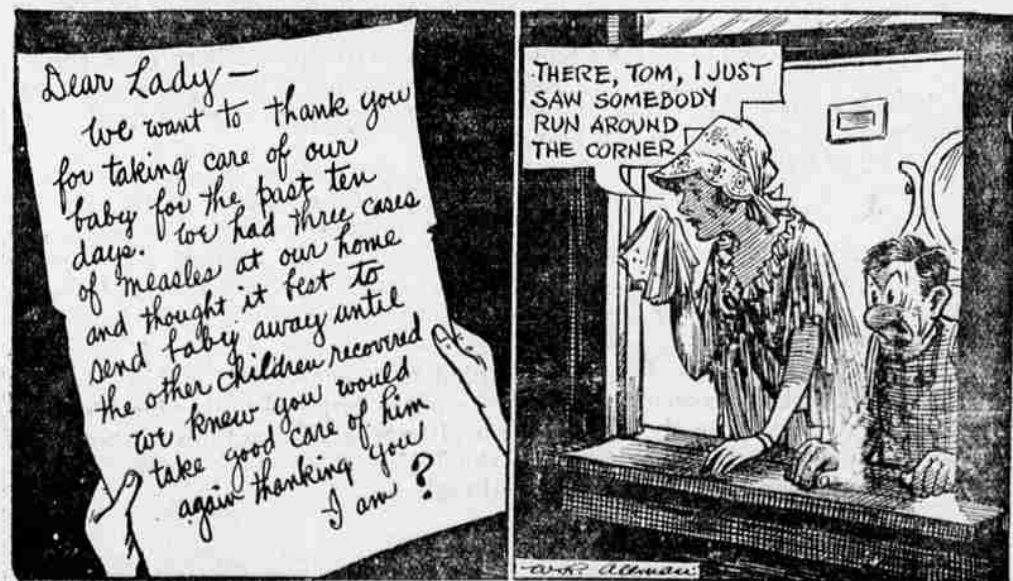 Dear Lady —
We want to thank you
for taking care of our
baby for the past ten
days. We had three cases
of measles at our home
and thought it best to
send baby away until
the other children recovered
we knew you would
take good care of him
again thanking you
I am ?
THERE, TOM, I JUST
SAW SOMEBODY
RUN AROUND
THE CORNER
W.R. Allman